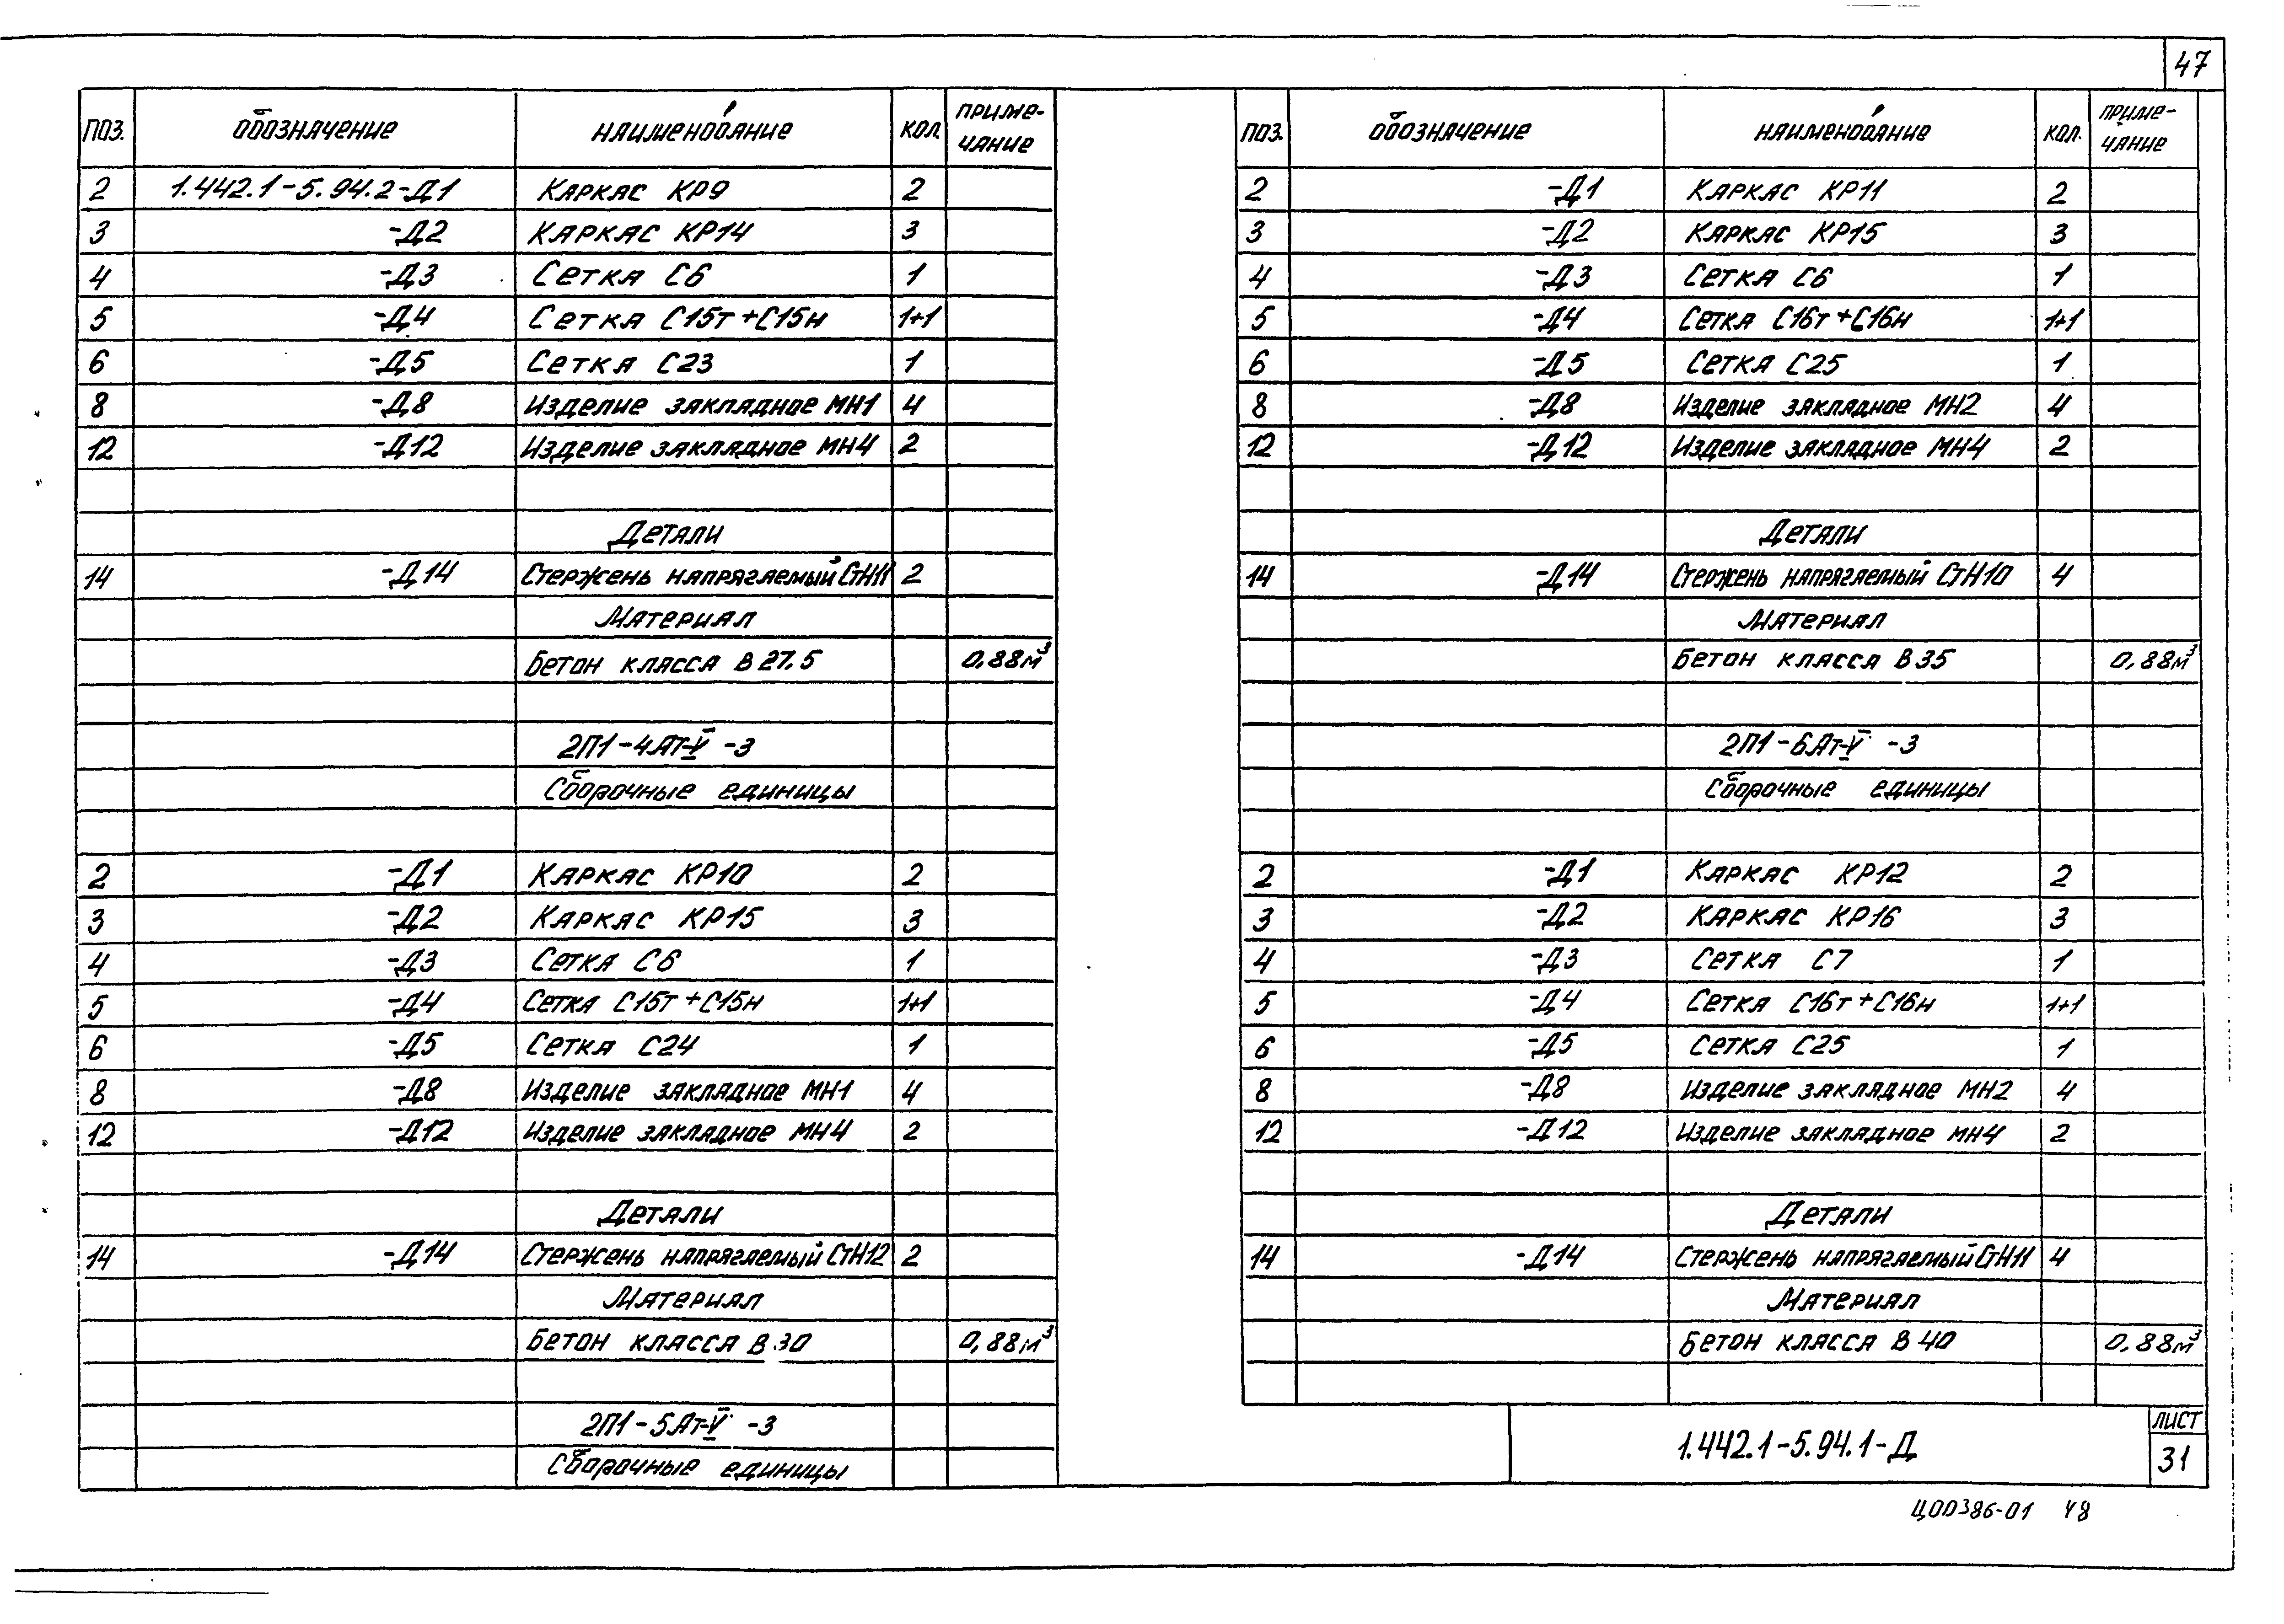 47
ПОЗ. ОБОЗНАЧЕНИЕ НАИМЕНОВАНИЕ КОЛ. ПРИМЕ-
ЧАНИЕ
2 1.442.1-5.94.2-Д1 Каркас КР9 2
3 -Д2 Каркас КР14 3
4 -Д3 Сетка С6 1
5 -Д4 Сетка С15т+С15н 1+1
6 -Д5 Сетка С23 1
8 -Д8 Изделие закладное МН1 4
12 -Д12 Изделие закладное МН4 2
Детали
14 -Д14 Стержень напрягаемый СтН11 2
Материал
Бетон класса В 27.5 0,88м³
2П1-4Ат-V -3
Сборочные единицы
2 -Д1 Каркас КР10 2
3 -Д2 Каркас КР15 3
4 -Д3 Сетка С6 1
5 -Д4 Сетка С15т+С15н 1+1
6 -Д5 Сетка С24 1
8 -Д8 Изделие закладное МН1 4
12 -Д12 Изделие закладное МН4 2
Детали
14 -Д14 Стержень напрягаемый СтН12 2
Материал
Бетон класса В 30 0,88м³
2П1-5Ат-V -3
Сборочные единицы
ПОЗ. ОБОЗНАЧЕНИЕ НАИМЕНОВАНИЕ КОЛ. ПРИМЕ-
ЧАНИЕ
2 -Д1 Каркас КР11 2
3 -Д2 Каркас КР15 3
4 -Д3 Сетка С6 1
5 -Д4 Сетка С16т+С16н 1+1
6 -Д5 Сетка С25 1
8 -Д8 Изделие закладное МН2 4
12 -Д12 Изделие закладное МН4 2
Детали
14 -Д14 Стержень напрягаемый СтН10 4
Материал
Бетон класса В 35 0,88м³
2П1-6Ат-V -3
Сборочные единицы
2 -Д1 Каркас КР12 2
3 -Д2 Каркас КР16 3
4 -Д3 Сетка С7 1
5 -Д4 Сетка С16т+С16н 1+1
6 -Д5 Сетка С25 1
8 -Д8 Изделие закладное МН2 4
12 -Д12 Изделие закладное МН4 2
Детали
14 -Д14 Стержень напрягаемый СтН11 4
Материал
Бетон класса В 40 0,88м³
1.442.1-5.94.1-Д
ЛИСТ
31
Ц00386-01 48